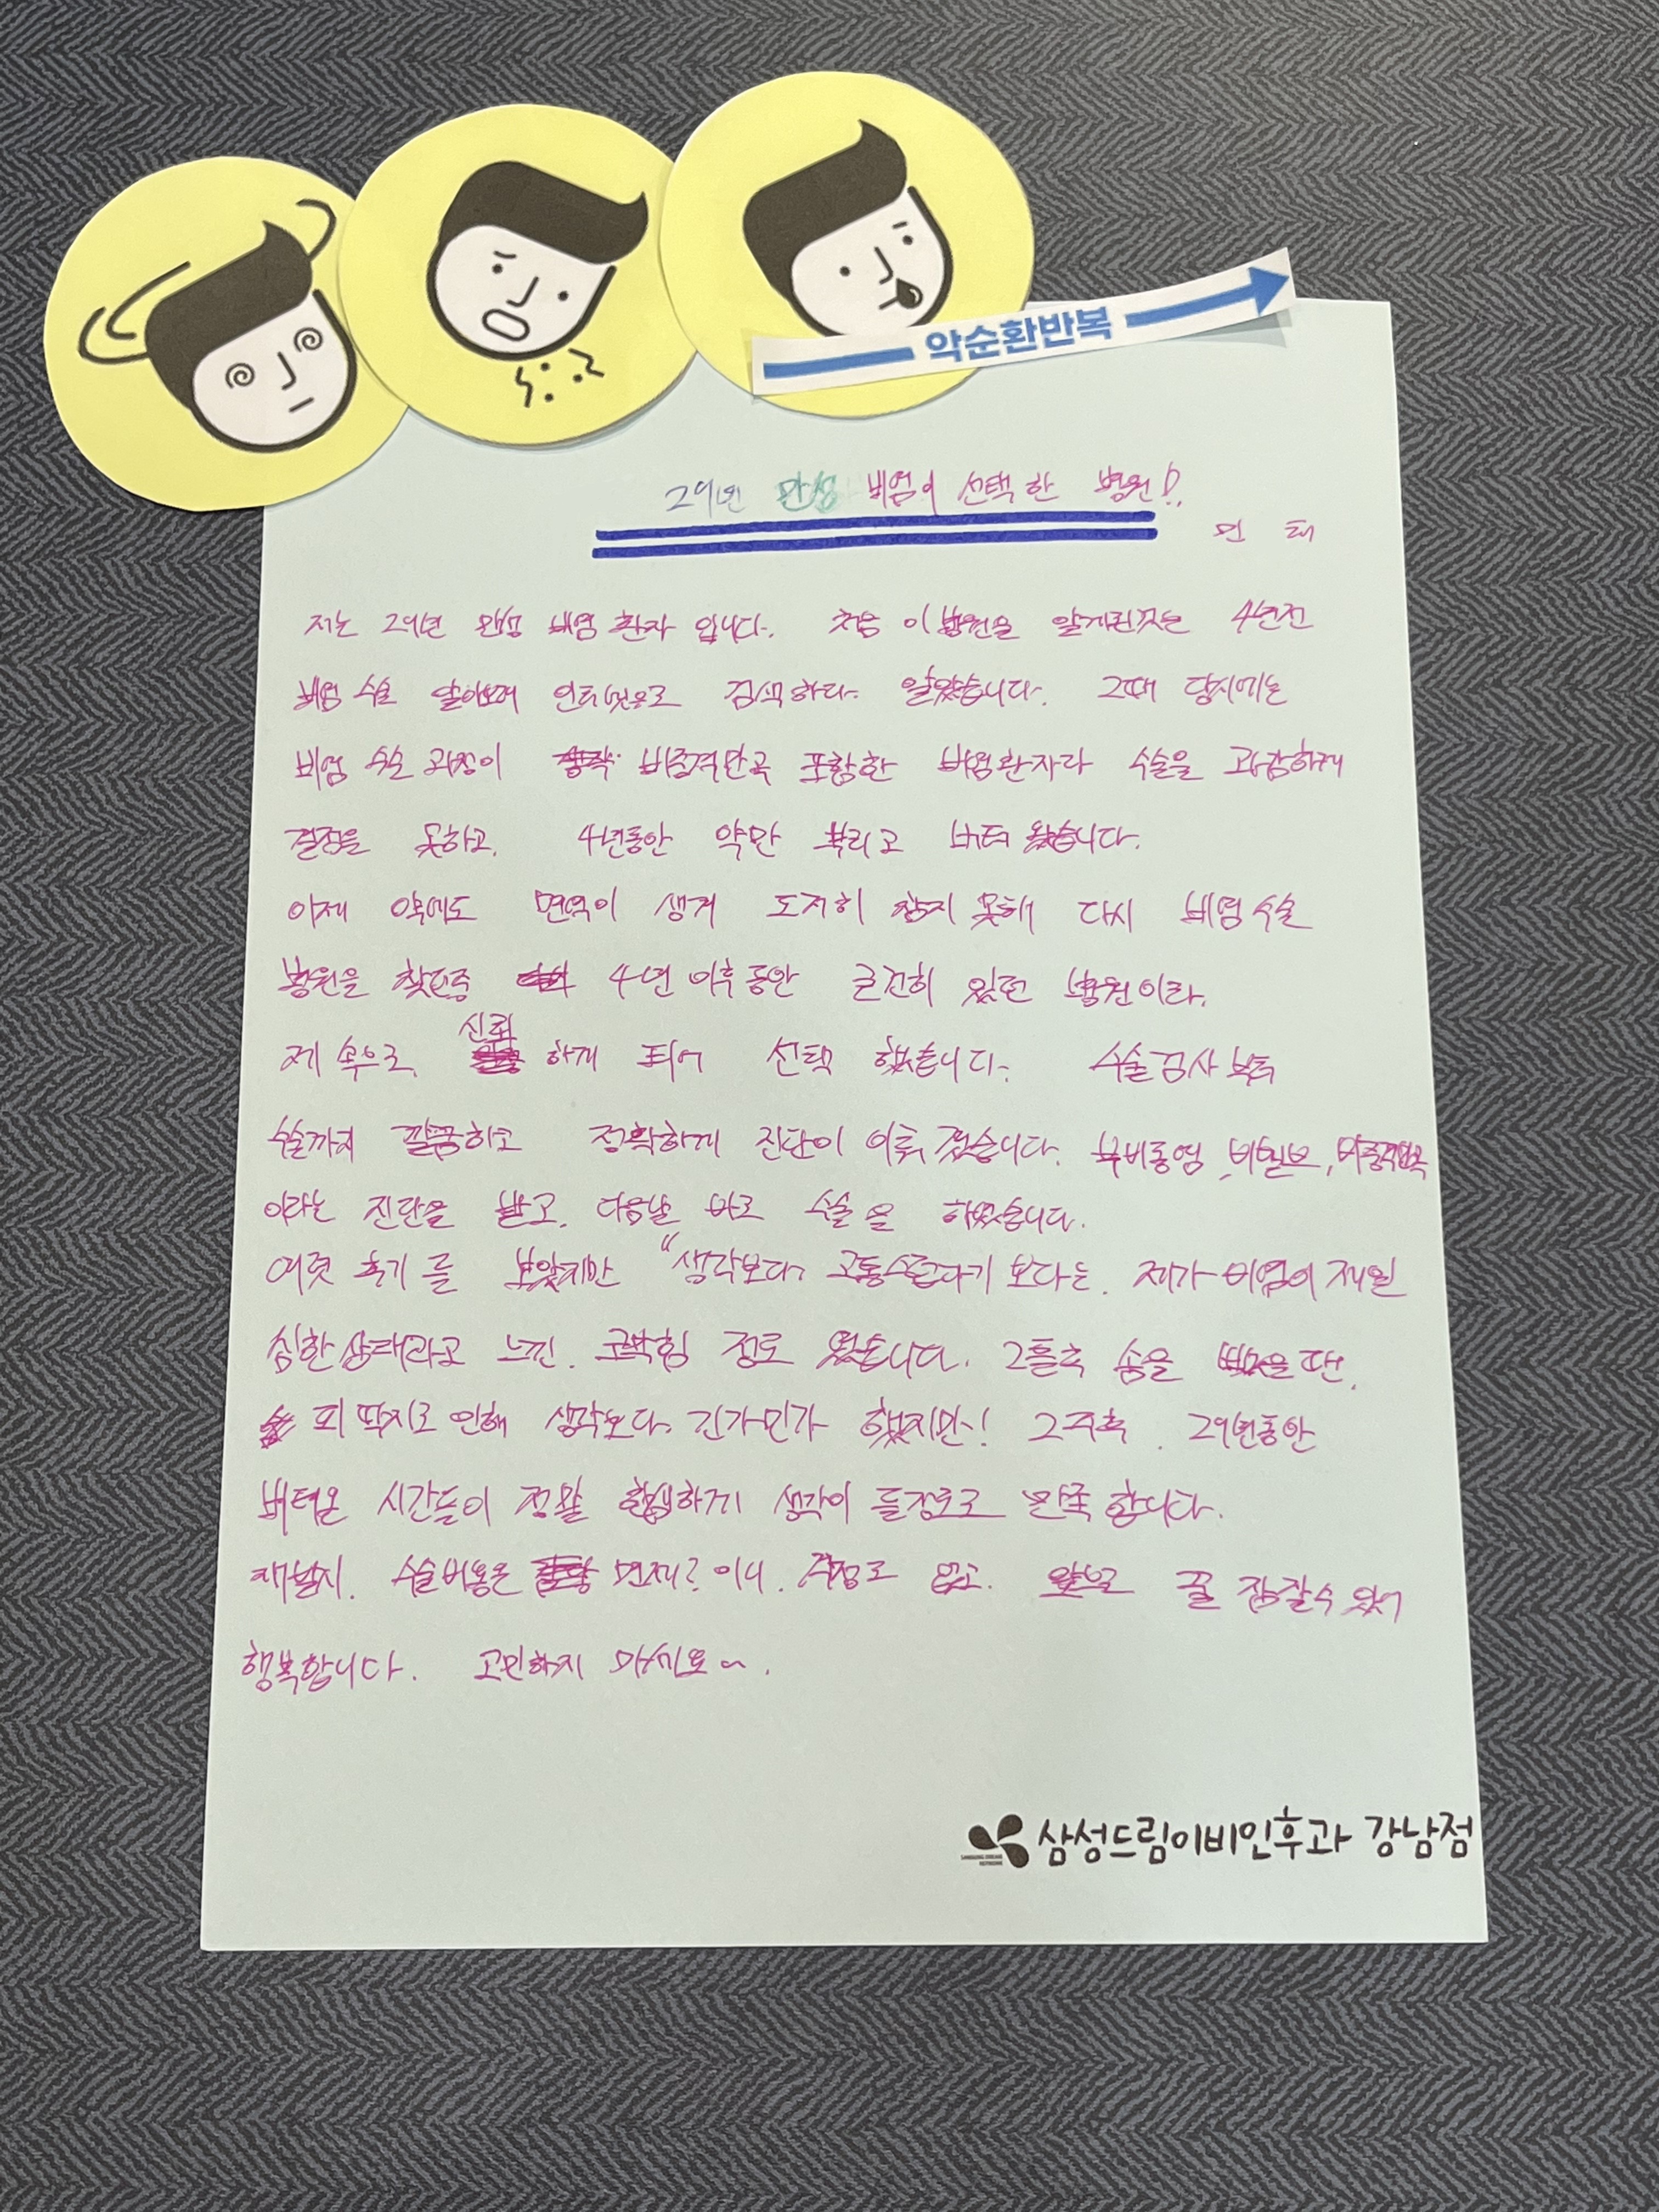 악순환반복
29년 만성 비염이 선택한 병원!!
민 태
저는 29년 만성 비염 환자 입니다. 처음 이 병원을 알게된것은 4년전
비염 수술 알아보며 인터넷으로 검색하다 알았습니다. 그때 당시에는
비염 수술 과정이 비중격만곡 포함한 비염환자라 수술을 과감하게
결정을 못하고, 4년동안 약만 뿌리고 버텨 왔습니다.
이제 약에도 면역이 생겨 도저히 참지 못해 다시 비염수술
병원을 찾던중 4년 이후 동안 굳건히 있던 병원이라.
제 속으로, 신뢰 하게 되어 선택 했습니다. 수술검사 부터
수술까지 깔끔하고 정확하게 진단이 이뤄 졌습니다. 부비동염, 비밸브, 비중격만곡
이라는 진단을 받고, 다음날 바로 수술을 하였습니다.
여럿 후기를 보았지만 "생각보다 고통스럽다기 보다는. 제가 비염이 제일
심한상태라고 느낀. 코막힘 정도 였습니다. 2틀후 솜을 뺐을땐,
피 딱지로 인해 생각보다. 긴가민가 했지만! 2주후. 29년동안
버텨온 시간들이 정말 생각이 들정도로 만족 합니다.
재발시. 수술비용은 면제? 이니. 걱정도 없고. 앞으로 꿀잠잘수 있어
행복합니다. 고민하지 마세요~.
삼성드림이비인후과 강남점